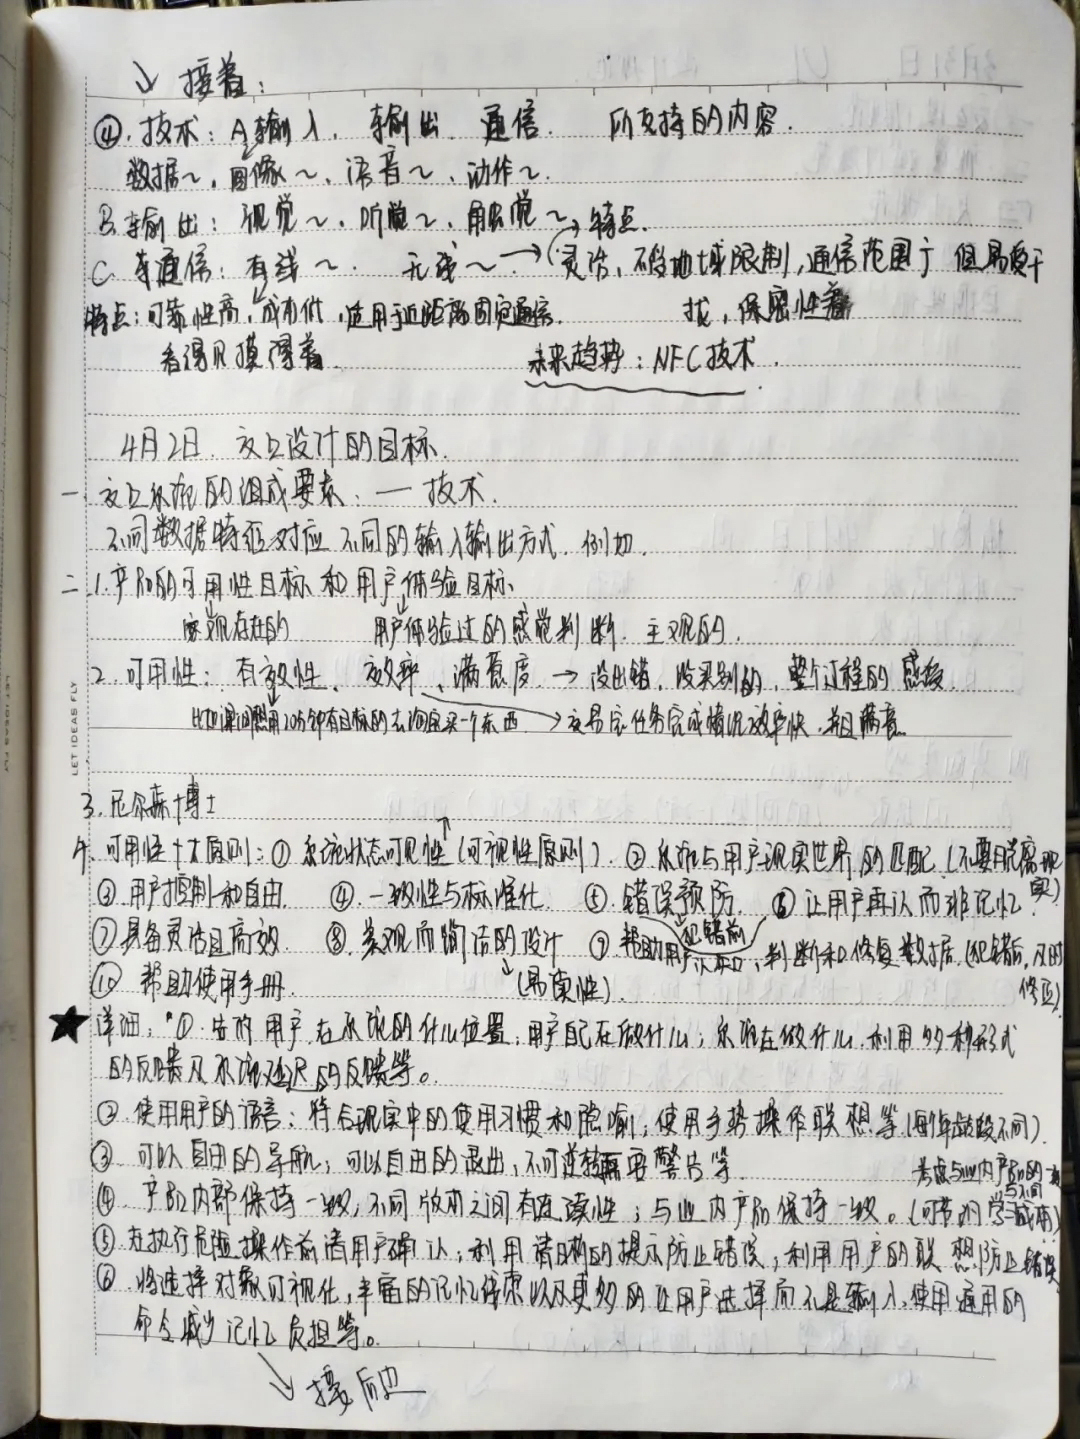 ↓ 接着：
④. 技术：A 输入、输出、通信. 所支持的内容.
数据～、图像～、语音～、动作～.
B. 输出：视觉～、听觉～、触觉～ → 特点.
C. 通信：有线～. 无线～ → 灵活、不受地域限制，通信范围广 但易受干
特点：可靠性高，成本低，适用于近距离固定通信. 扰，保密性差
看得见摸得着. 未来趋势：NFC技术.
4月2日. 交互设计的目标.
一 交互系统的组成要素：— 技术.
不同数据特征对应 不同的输入输出方式. 例如.
二 1. 产品的可用性目标 和 用户体验目标
客观存在的 用户体验过的感觉判断. 主观的.
2. 可用性：有效性、效率、满意度. → 没出错，没买别的，整个过程的感受.
比如课间用20分钟有目标的去淘宝买一个东西 → 交易完任务完成情况效率快，并且满意
3. 尼尔森博士
4. 可用性十大原则：① 系统状态可见性 (可视性原则). ② 系统与用户现实世界的匹配 (不要脱离现实)
③ 用户控制和自由. ④. 一致性与标准化 ⑤. 错误预防. ⑥ 让用户再认而非记忆
犯错前
⑦ 具备灵活且高效. ⑧. 美观而简洁的设计 ⑨ 帮助用户认知，判断和修复数据. (犯错后，及时修正)
⑩ 帮助使用手册. (易读性).
★ 详细：① 告的用户在系统的什么位置，用户自己在做什么；系统在做什么，利用多种形式
的反馈及系统延迟的反馈等。
② 使用用户的语言；符合现实中的使用习惯和隐喻；使用手势操作联想等 (每个年龄段不同).
③. 可以自由的导航；可以自由的退出，不可逆转 警告等
考虑与业内产品的 与不同
④. 产品内部保持一致，不同版本之间有连续性；与业内产品保持一致。(可节约学习成本)
⑤ 在执行危险操作前请用户确认；利用清晰的提示防止错误；利用用户的联想防止错误
⑥. 将选择对象可视化，丰富的记忆线索以及更多的让用户选择而不是输入，使用通用的
命令减少记忆负担等。
↓ 接后边
LET IDEAS FLY